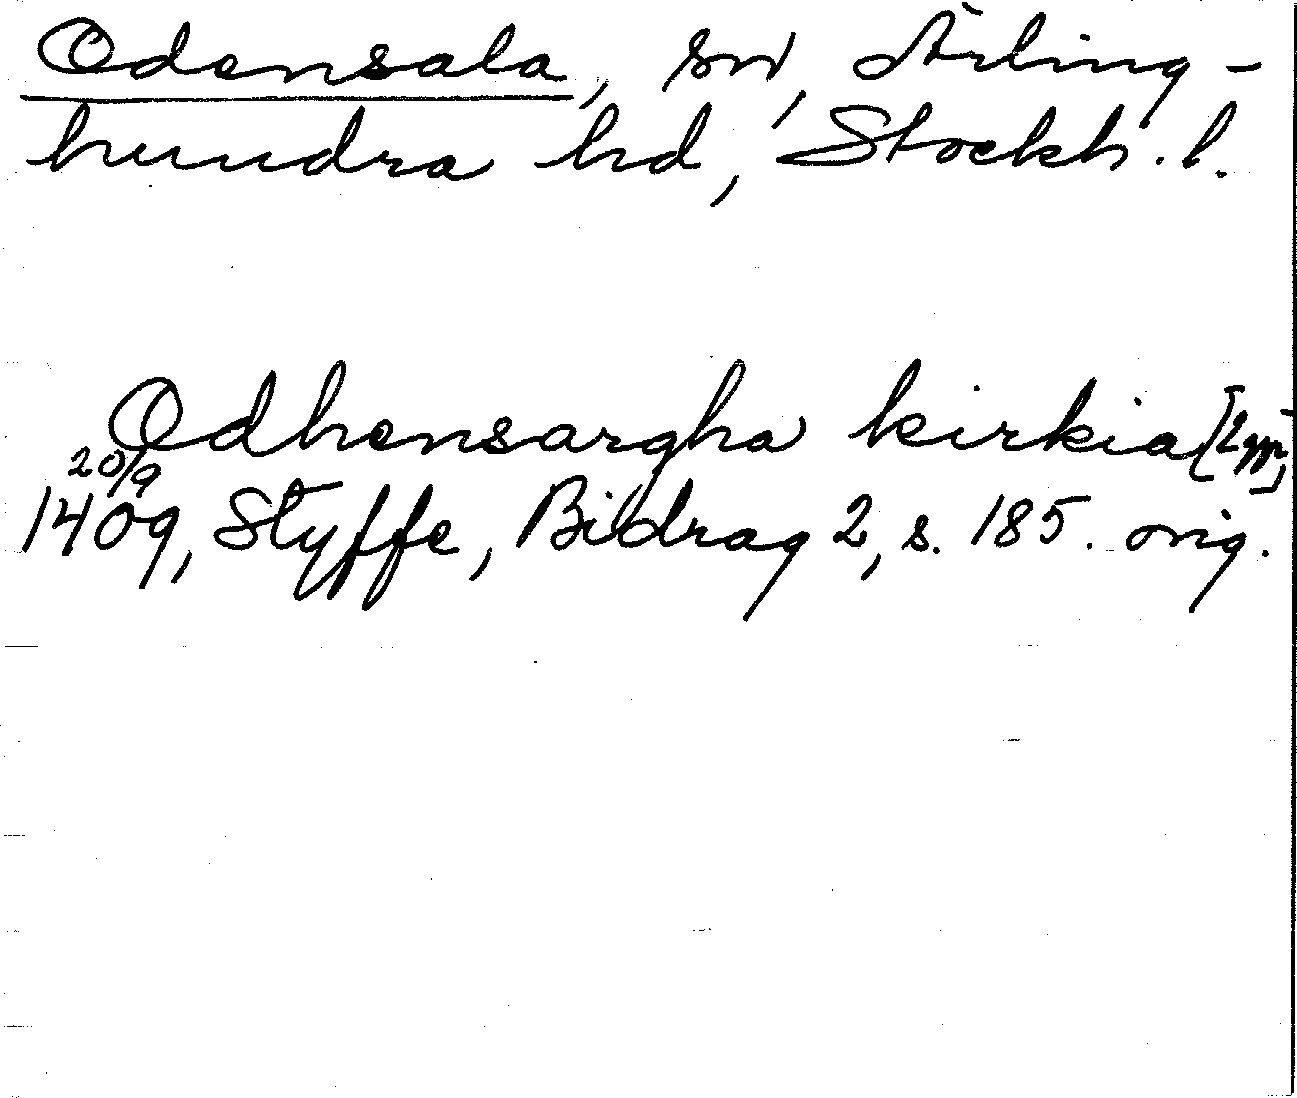 Odensala, sn, Ärling-
hundra hd, Stockh. l.
Odhensargha kirkia [2 ggr,]
20/9
1409, Styffe, Bidrag 2, s. 185. orig.